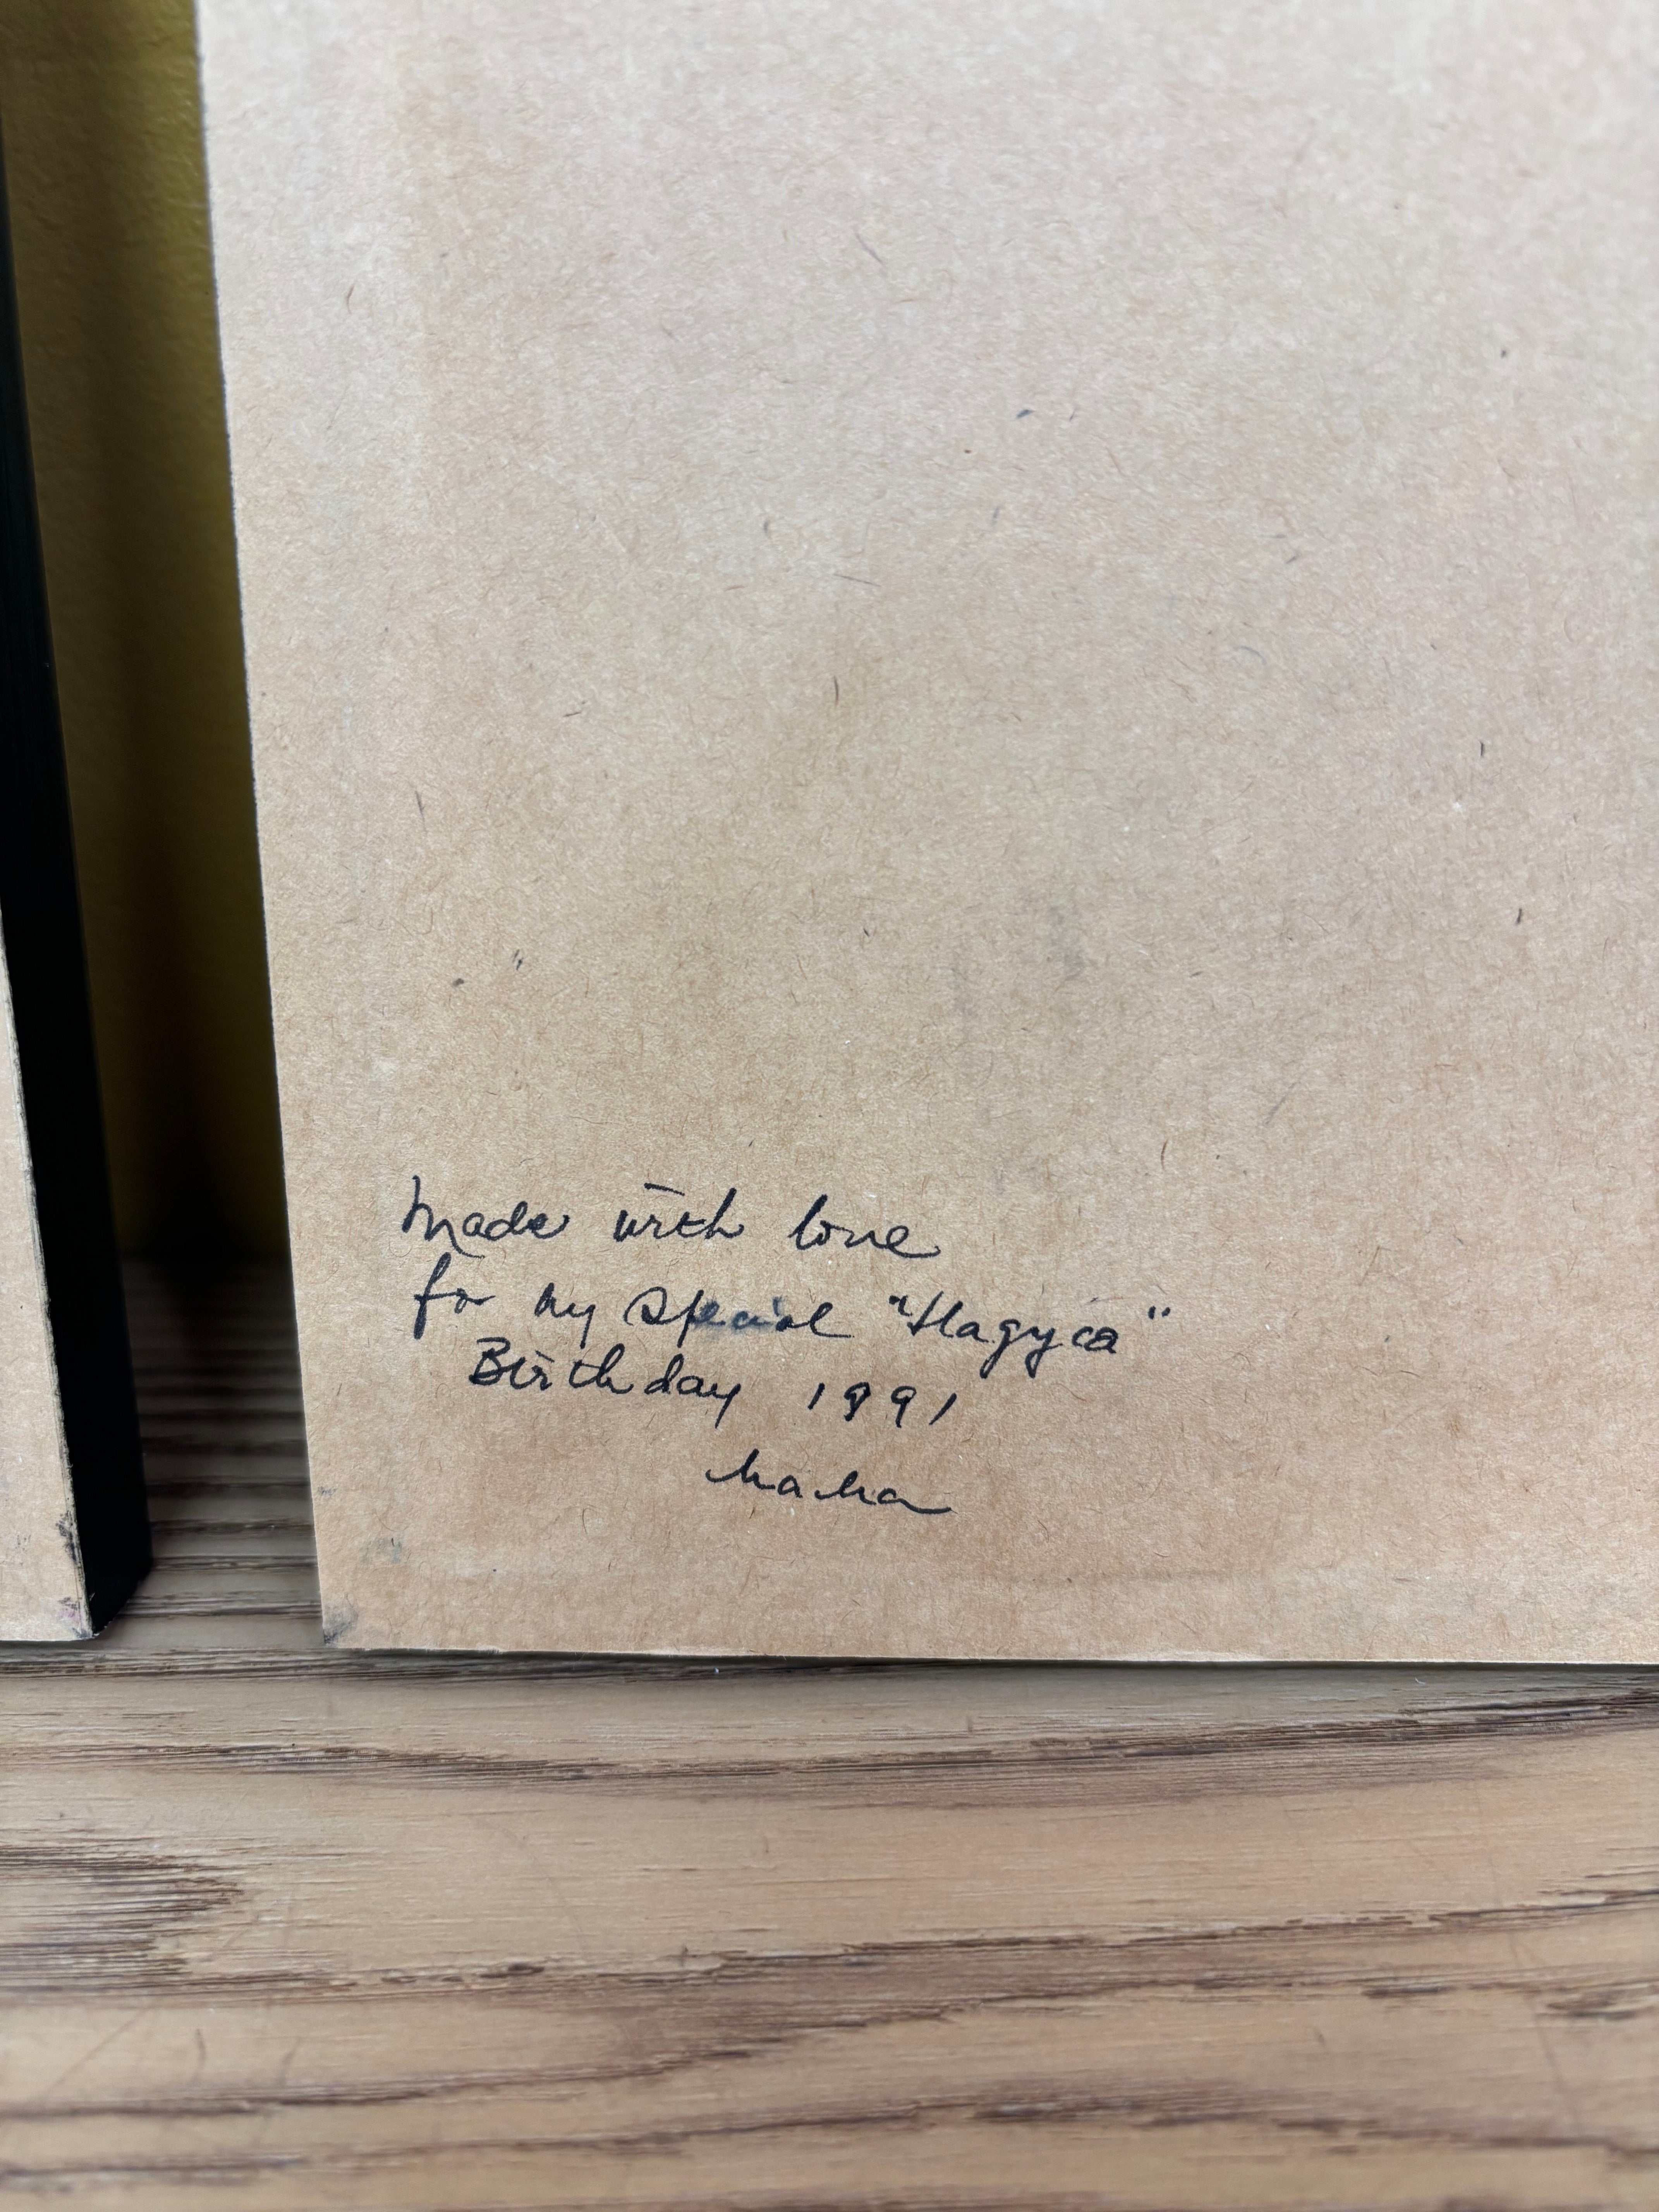 Made with love
for my special "Hagyca"
Birthday 1991
Mama